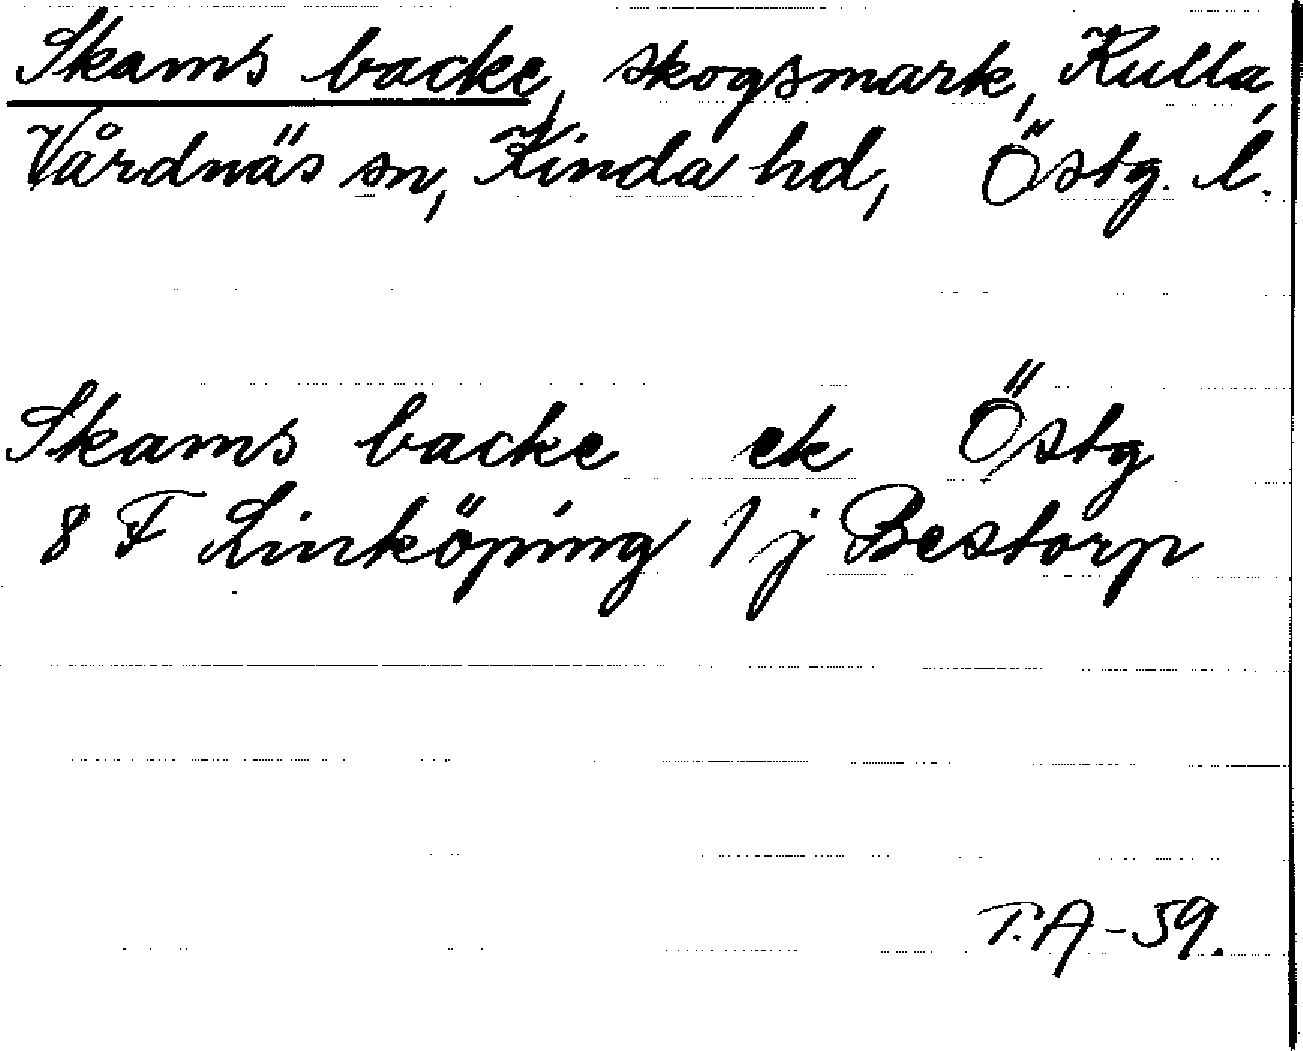 Skams backe, skogsmark, Kulla,
Vårdnäs sn, Kinda hd, Östg. l.
Skams backe ek Östg
8 F Linköping 1 j Bestorp
T.A-59.